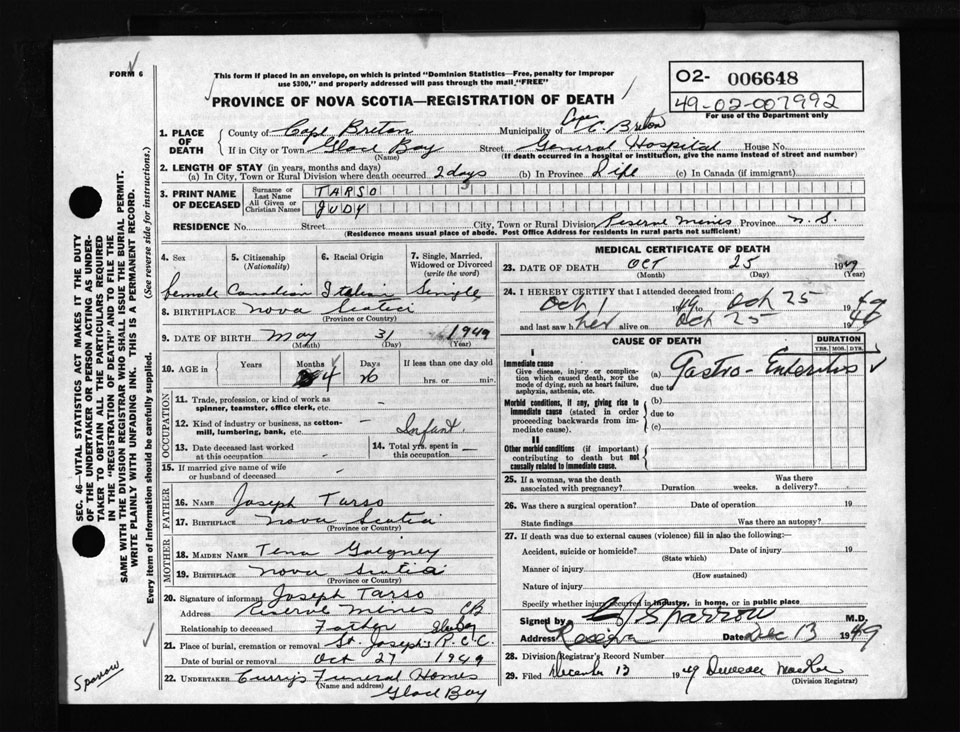 FORM 6
This form if placed in an envelope, on which is printed "Dominion Statistics—Free, penalty for improper
use $300," and properly addressed will pass through the mail "FREE"
PROVINCE OF NOVA SCOTIA—REGISTRATION OF DEATH
O2- 006648
49-02-007992
For use of the Department only
1. PLACE OF DEATH
County of Cape Breton Municipality of Cape Breton
If in City or Town Glace Bay Street General Hospital House No.
(Name) (If death occurred in a hospital or institution, give the name instead of street and number)
2. LENGTH OF STAY (in years, months and days)
(a) In City, Town or Rural Division where death occurred 2 days (b) In Province Life (c) In Canada (if immigrant)
3. PRINT NAME OF DECEASED
Surname or Last Name TARSO
All Given or Christian Names JUDY
RESIDENCE No. Street City, Town or Rural Division Reserve Mines Province N. S.
(Residence means usual place of abode. Post Office Address for residents in rural parts not sufficient)
4. Sex female
5. Citizenship (Nationality) Canadian
6. Racial Origin Italian
7. Single, Married, Widowed or Divorced (write the word) Single
8. BIRTHPLACE Nova Scotia
(Province or Country)
9. DATE OF BIRTH May 31 1949
(Month) (Day) (Year)
10. AGE in Years Months 4 Days 26 If less than one day old
hrs. or min.
OCCUPATION
11. Trade, profession, or kind of work as
spinner, teamster, office clerk, etc. -
12. Kind of industry or business, as cotton-
mill, lumbering, bank, etc. Infant.
13. Date deceased last worked at this occupation -
14. Total yrs. spent in this occupation -
15. If married give name of wife
or husband of deceased -
FATHER
16. NAME Joseph Tarso
17. BIRTHPLACE Nova Scotia
(Province or Country)
MOTHER
18. MAIDEN NAME Tena
19. BIRTHPLACE Nova Scotia
(Province or Country)
20. Signature of informant Joseph Tarso
Address Reserve Mines CB
Relationship to deceased Father
21. Place of burial, cremation or removal St. Joseph's R.C.C. Glace Bay
Date of burial or removal Oct 27 1949
22. UNDERTAKER Curry's Funeral Homes
(Name and address)
Glace Bay
MEDICAL CERTIFICATE OF DEATH
23. DATE OF DEATH Oct 25 1949
(Month) (Day) (Year)
24. I HEREBY CERTIFY that I attended deceased from:
Oct 1 1949 to Oct 25 1949
and last saw her alive on Oct 25 1949
CAUSE OF DEATH
DURATION
YRS. MOS. DYS.
I
Immediate cause
Give disease, injury or complication which caused death, not the mode of dying, such as heart failure, asphyxia, asthenia, etc.
(a) Gastro-Enteritis
due to
Morbid conditions, if any, giving rise to immediate cause (stated in order proceeding backwards from immediate cause).
(b)
due to
(c)
II
Other morbid conditions (if important) contributing to death but not causally related to immediate cause.
25. If a woman, was the death associated with pregnancy? Duration weeks. Was there a delivery?
26. Was there a surgical operation? Date of operation 19
State findings Was there an autopsy?
27. If death was due to external causes (violence) fill in also the following:
Accident, suicide or homicide? Date of injury 19
(State which)
Manner of injury
(How sustained)
Nature of injury
Specify whether injury occurred in industry, in home, or in public place
Signed by Sparrow M.D.
Address Date Dec 13 1949
28. Division Registrar's Record Number
29. Filed December 13 1949
(Division Registrar)
SEC. 46—VITAL STATISTICS ACT MAKES IT THE DUTY
OF THE UNDERTAKER OR PERSON ACTING AS UNDER-
TAKER TO OBTAIN ALL THE PARTICULARS REQUIRED
IN THE "REGISTRATION OF DEATH" AND TO FILE THE
SAME WITH THE DIVISION REGISTRAR WHO SHALL ISSUE THE BURIAL PERMIT.
WRITE PLAINLY WITH UNFADING INK. THIS IS A PERMANENT RECORD.
Every item of information should be carefully supplied. (See reverse side for instructions.)
Sparrow